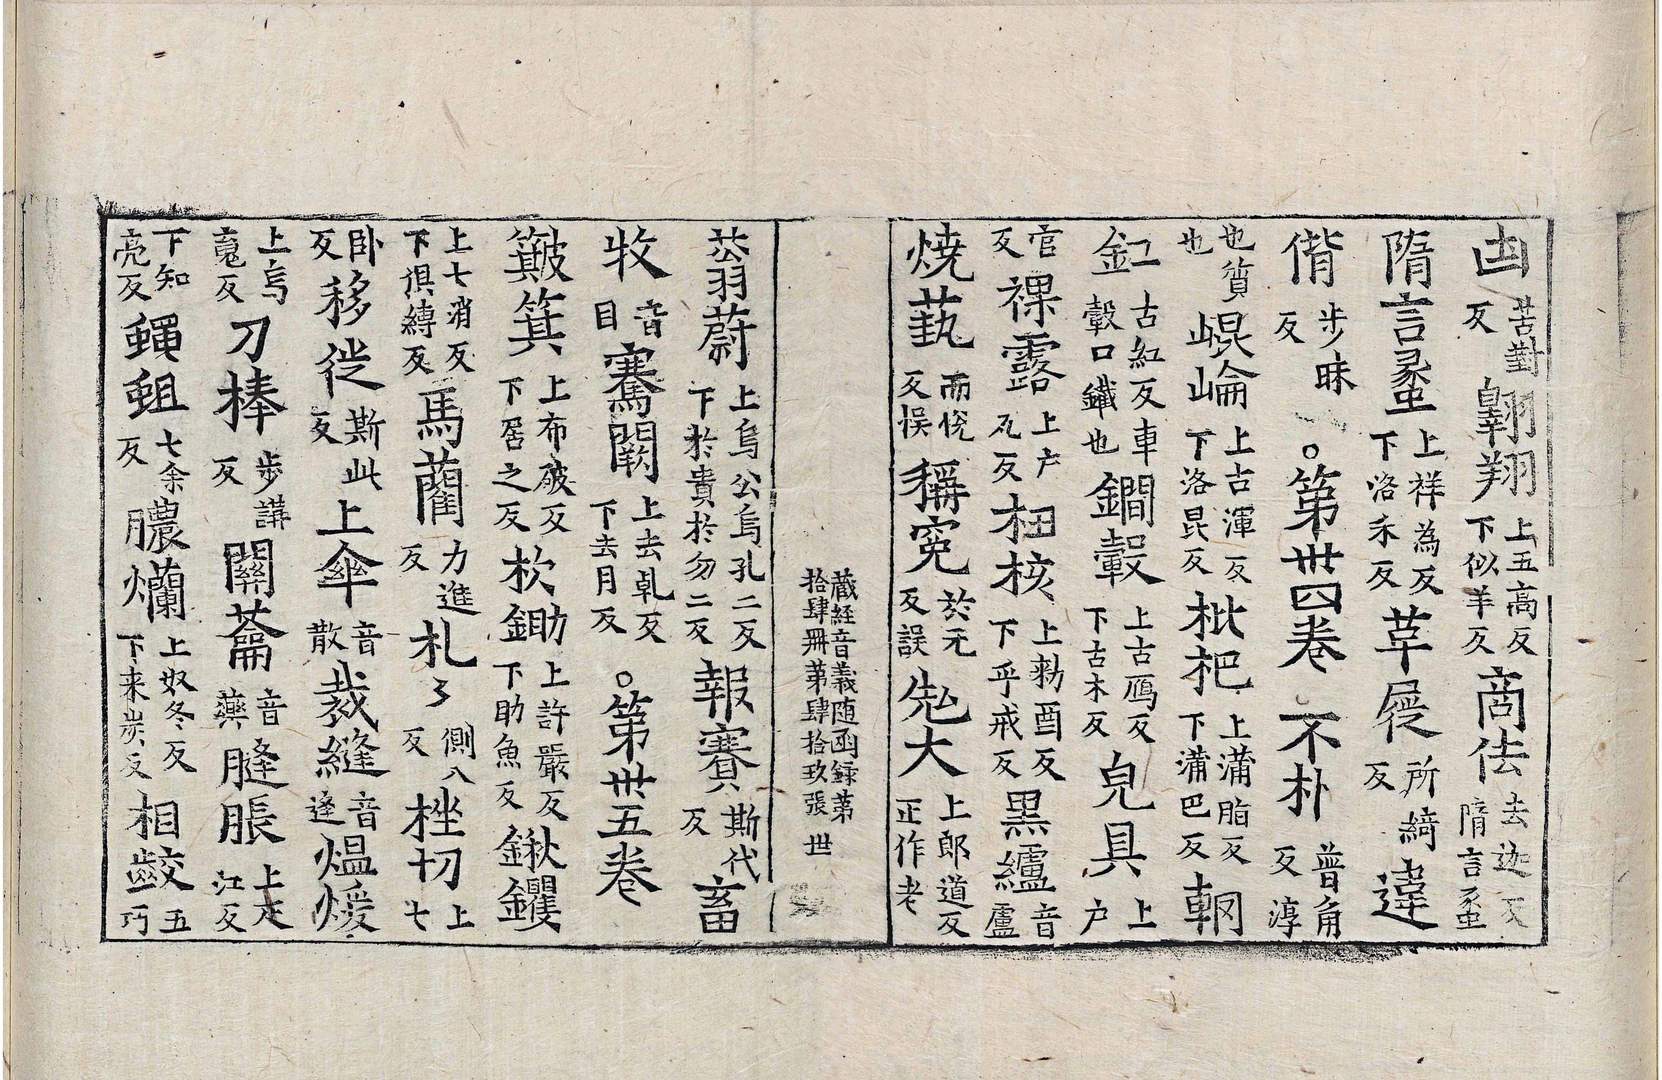 凷苦對反翺翔上五高反下似羊反商佉去迦反隋言蠡
隋言蠡上祥為反下洛禾反草屣所綺反違
偝步昧反。第卅四卷不朴普角反淳
也質也崐崘上古渾反下洛昆反枇杷上蒲脂反下蒲巴反輞
釭古紅反車轂口鐵也鐧轂上古鴈反下古木反皃具上户
官反裸露上户瓦反杻核上勑酉反下乎戒反黑纑音盧
燒爇而悅反悮稱寃扵元反誤兂大上郎道反正作老
藏経音義随函録第拾肆冊第肆拾玖張 世
蓊蔚上烏公烏孔二反下於貴於勿二反報賽斯代反畜
牧音目騫闕上去乹反下去月反。第卅五卷
簸箕上布破反下居之反杴鋤上許嚴反下助魚反鍬钁
上七消反下俱縛反馬藺力進反札〻側八反挫切上七
卧反移徙斯此反上傘音散裁縫音逢煴煖
上烏寬反刀棒步講反關蘥音藥膖脹上疋江反
下知亮反蝿蛆七余反膿爛上奴冬反下来炭反相齩五巧